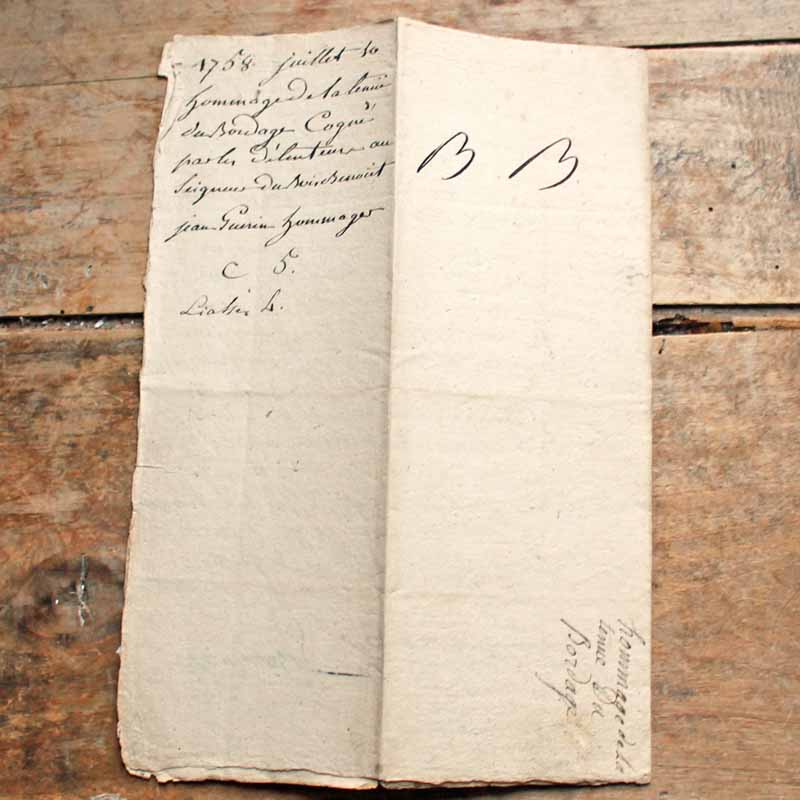 1758 juillet 10
hommage de la tenue
du Bordage Coqué
par les détenteurs au
Seigneur du Bois Benoist
jean Guerin hommager
C 5.
Liasse 4.
B B
hommage de la
tenue du
Bordage